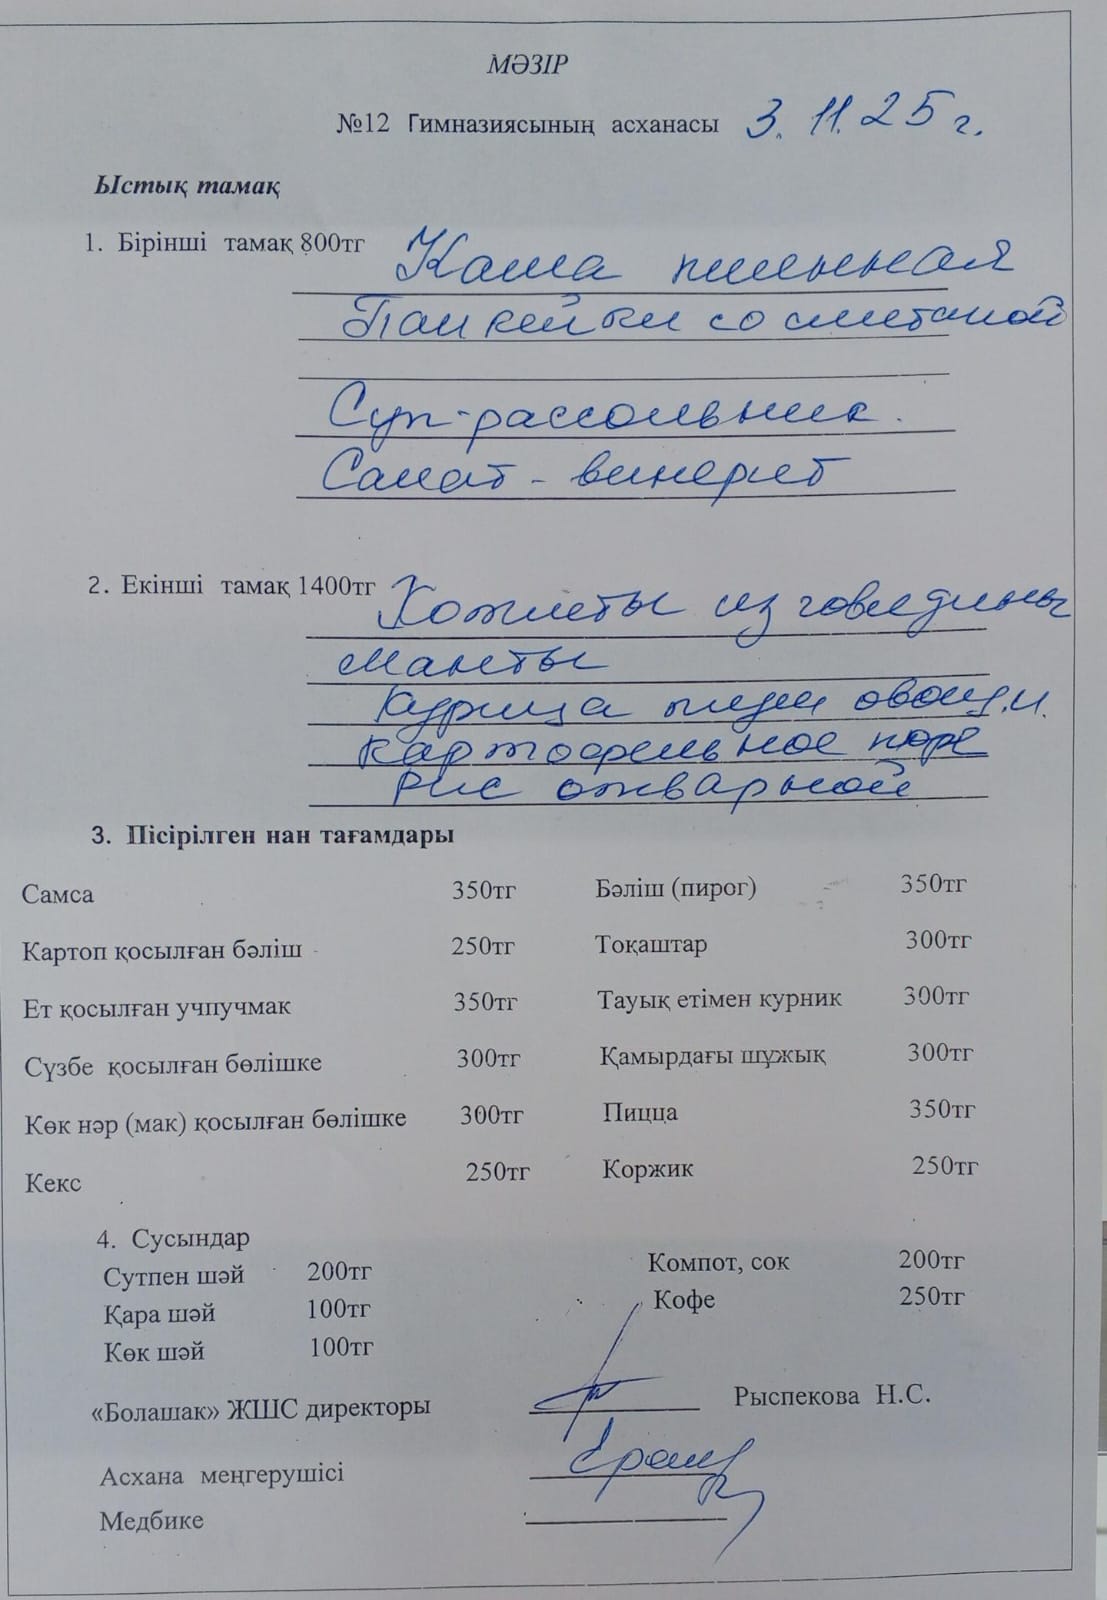 МӘЗІР
№12 Гимназиясының асханасы 3. 11. 25 г.
Ыстық тамақ
1. Бірінші тамақ 800тг Каша пшенная
Панкейки со сметаной
Суп-рассольник.
Салат - винегрет
2. Екінші тамақ 1400тг Котлеты из говядины
Манты
Курица овощ.
Картофельное пюре
Рис отварной
3. Пісірілген нан тағамдары
Самса 350тг Бәліш (пирог) 350тг
Картоп қосылған бәліш 250тг Тоқаштар 300тг
Ет қосылған учпучмак 350тг Тауық етімен курник 300тг
Сүзбе қосылған бөлішке 300тг Қамырдағы шұжық 300тг
Көк нәр (мак) қосылған бөлішке 300тг Пицца 350тг
Кекс 250тг Коржик 250тг
4. Сусындар
Сутпен шәй 200тг Компот, сок 200тг
Қара шәй 100тг Кофе 250тг
Көк шәй 100тг
«Болашак» ЖШС директоры Рыспекова Н.С.
Асхана меңгерушісі
Медбике